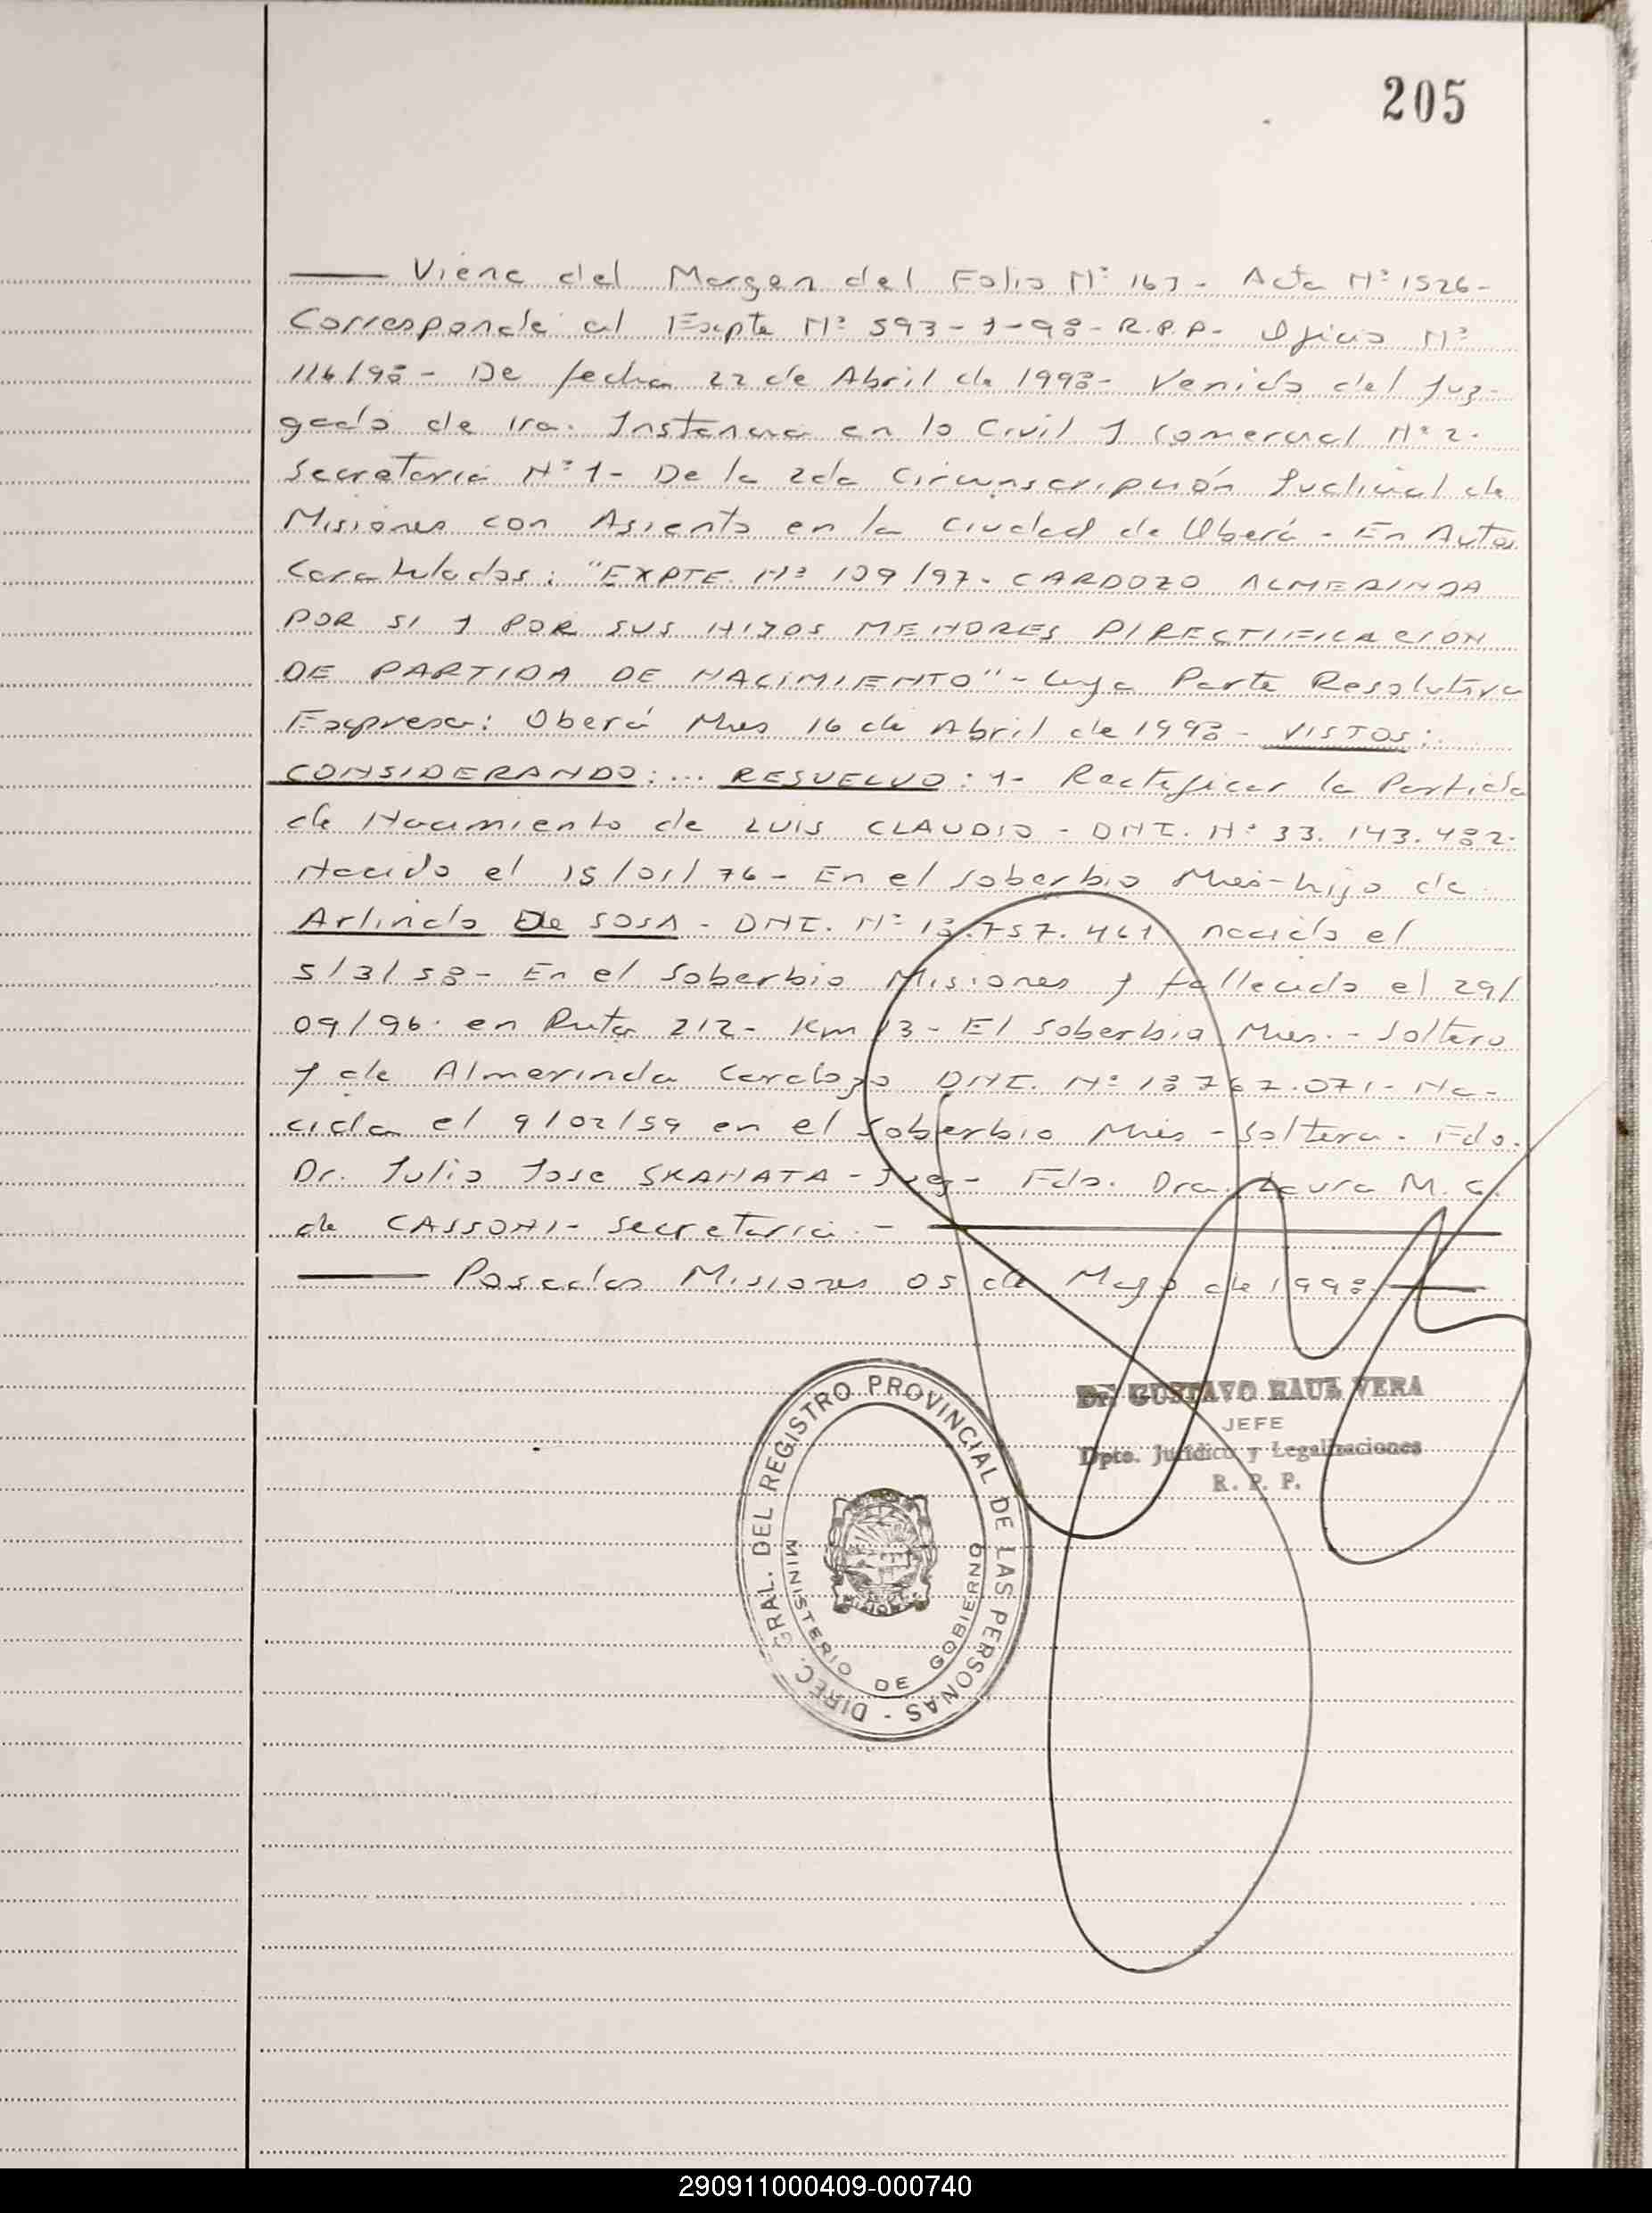 205
Viene del Margen del Folio Nº 167 - Acta Nº 1526-
Corresponde al Expte Nº 593-Y-98- R.P.P- Oficio Nº
116/98 - De fecha 22 de Abril de 1998- Venido del Juz-
gado de 1ra. Instancia en lo Civil y Comercial Nº 2-
Secretaria Nº 1- De la 2da Circunscripción Judicial de
Misiones con Asiento en la Ciudad de Oberá - En Autos
Caratulados: "EXPTE. Nº 109/97- CARDOZO ALMERINDA
POR SI Y POR SUS HIJOS MENORES P/RECTIFICACION
DE PARTIDA DE NACIMIENTO" - Cuya Parte Resolutiva
Expresa: Oberá Mnes 16 de Abril de 1998- VISTOS:
CONSIDERANDO:... RESUELVO: 1- Rectificar la Partida
de Nacimiento de LUIS CLAUDIO - DNI. Nº 33.143.482-
Nacido el 15/01/76- En el soberbio Mnes-hijo de
Arlindo De SOSA - DNI. Nº 13.757.461 nacido el
5/3/58- En el Soberbio Misiones y fallecido el 29/
09/96- en Ruta 212- Km 13- El soberbio Mnes. - Soltero
y de Almerinda Cardozo DNI. Nº 18767.071- Na-
cida el 9/02/59 en el Soberbio Mnes - Soltera. Fdo.
Dr. Julio Jose SKANATA - Juez- Fdo. Dra. Laura M. C.
de CASSONI- secretaria.-
Posadas Misiones 05 de Mayo de 1998.
DR. GUSTAVO RAUL VERA
JEFE
Dpto. Jurídico y Legalizaciones
R. P. P.
DIREC. GRAL. DEL REGISTRO PROVINCIAL DE LAS PERSONAS -
MINISTERIO DE GOBIERNO
290911000409-000740